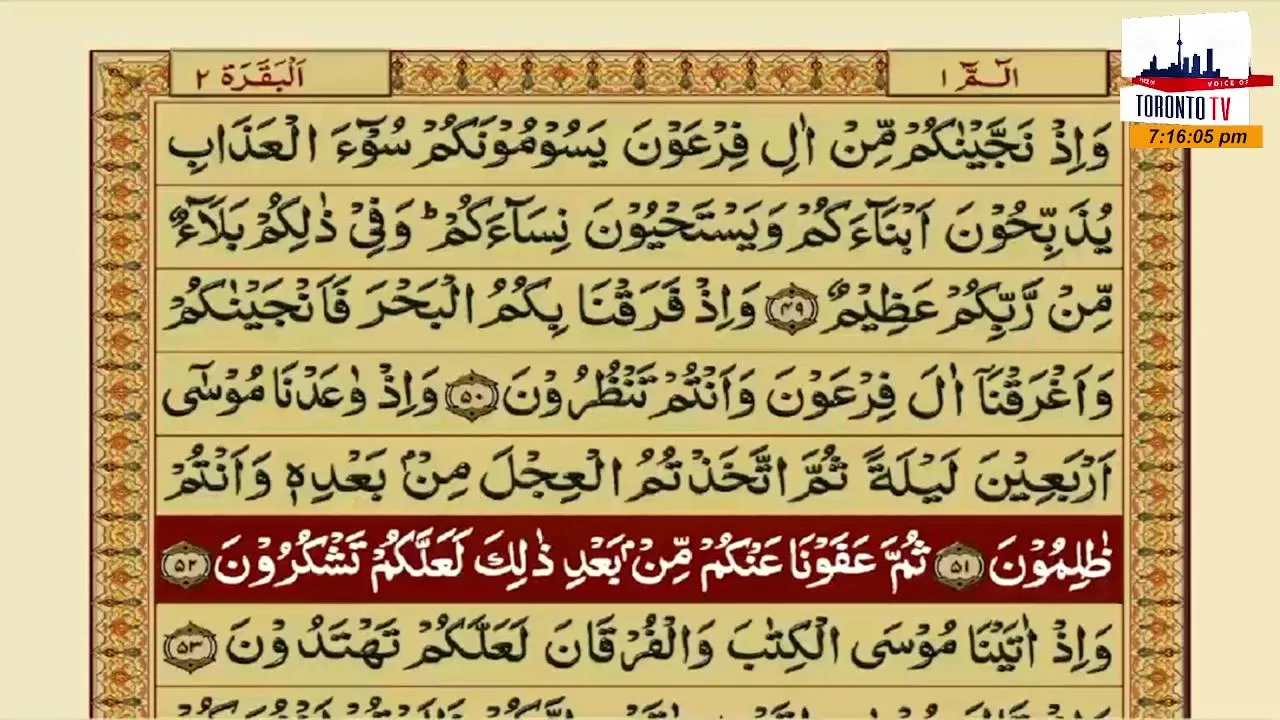 الٓمّٓ ١
اَلْبَقَرَة ٢
VOICE OF
TORONTO TV
7:16:05 pm
وَاِذْ نَجَّيْنٰكُمْ مِّنْ اٰلِ فِرْعَوْنَ يَسُوْمُوْنَكُمْ سُوْٓءَ الْعَذَابِ
يُذَبِّحُوْنَ اَبْنَآءَكُمْ وَيَسْتَحْيُوْنَ نِسَآءَكُمْ ؕ وَفِيْ ذٰلِكُمْ بَلَآءٌ
مِّنْ رَّبِّكُمْ عَظِيْمٌ ۴۹ وَاِذْ فَرَقْنَا بِكُمُ الْبَحْرَ فَاَنْجَيْنٰكُمْ
وَاَغْرَقْنَآ اٰلَ فِرْعَوْنَ وَاَنْتُمْ تَنْظُرُوْنَ ۵۰ وَاِذْ وٰعَدْنَا مُوْسٰٓى
اَرْبَعِيْنَ لَيْلَةً ثُمَّ اتَّخَذْتُمُ الْعِجْلَ مِنْۢ بَعْدِهٖ وَاَنْتُمْ
ظٰلِمُوْنَ ۵۱ ثُمَّ عَفَوْنَا عَنْكُمْ مِّنْۢ بَعْدِ ذٰلِكَ لَعَلَّكُمْ تَشْكُرُوْنَ ۵۲
وَاِذْ اٰتَيْنَا مُوْسَى الْكِتٰبَ وَالْفُرْقَانَ لَعَلَّكُمْ تَهْتَدُوْنَ ۵۳